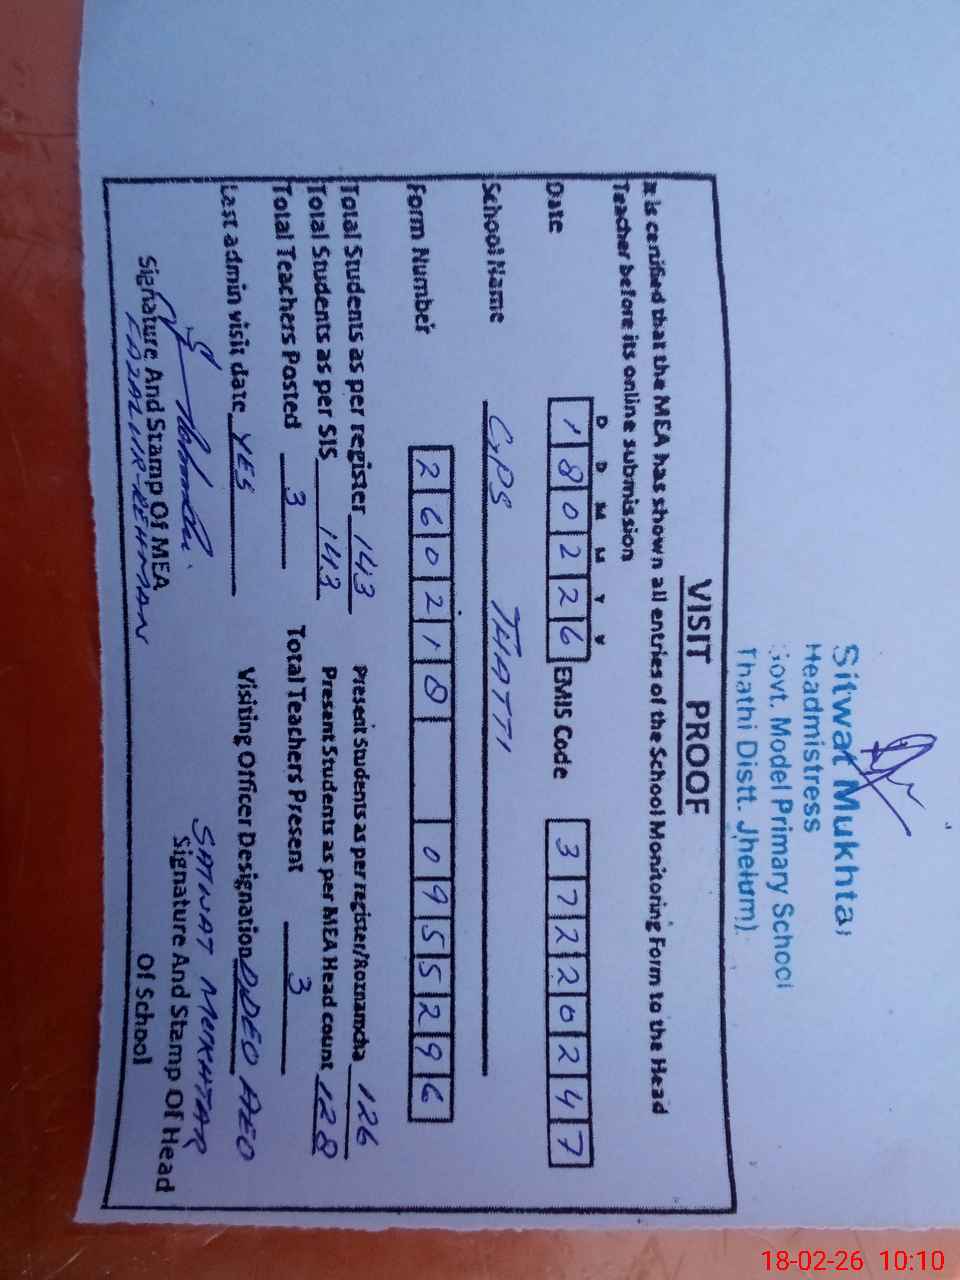 Sitwat Mukhtar
Headmistress
Govt. Model Primary School
Thathi Distt. Jhelum)
VISIT PROOF
It is certified that the MEA has shown all entries of the School Monitoring Form to the Head
Teacher before its online submission
D D M M Y Y
Date 180226 EMIS Code 37220247
School Name GPS THATTI
Form Number 260218 0955296
Total Students as per register 143 Present Students as per register/Roznamcha 126
Total Students as per SIS 143 Present Students as per MEA Head count 128
Total Teachers Posted 3 Total Teachers Present 3
Last admin visit date YES Visiting Officer Designation DDEO AEO
SATWAT MUKHTAR
Signature And Stamp Of MEA Signature And Stamp Of Head
FAZALUR-REHMAN Of School
18-02-26 10:10